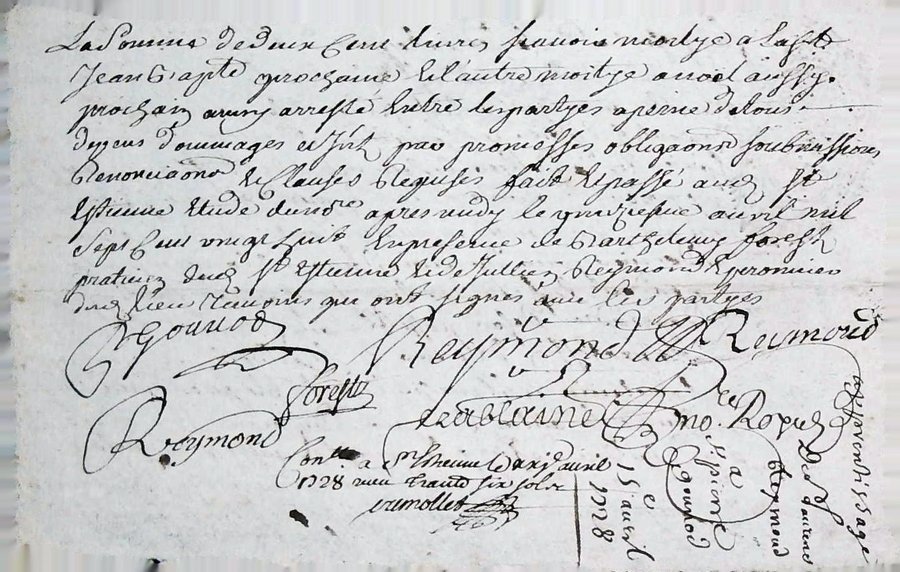 La Somme de deux Cent livres scavoir moitye a la feste
Jean Bapte prochaine et l'autre moitye a noel aussy
prochain ainsy arresté Entre les partyes a peine de tous
depens dommages et par promesses obligaons soubmissions
Renonciaons et Clauses Requises fait et passé aud St
Estienne Etude du nore apres midy le quinziesme auvril mil
Sept Cent vingt huit En presence de Barthelemy forest
praticien dud St Estienne et de Jullien Reymond
dud lieu temoins qui ont signes avec les partyes
Gounod Reymond Reymond
forest
Reymond no. Re
Conlle a St Estienne le avril
1728 Recu six sols
apprentissage
Reymond
a
St pierre
Gounod
15 avril
1728